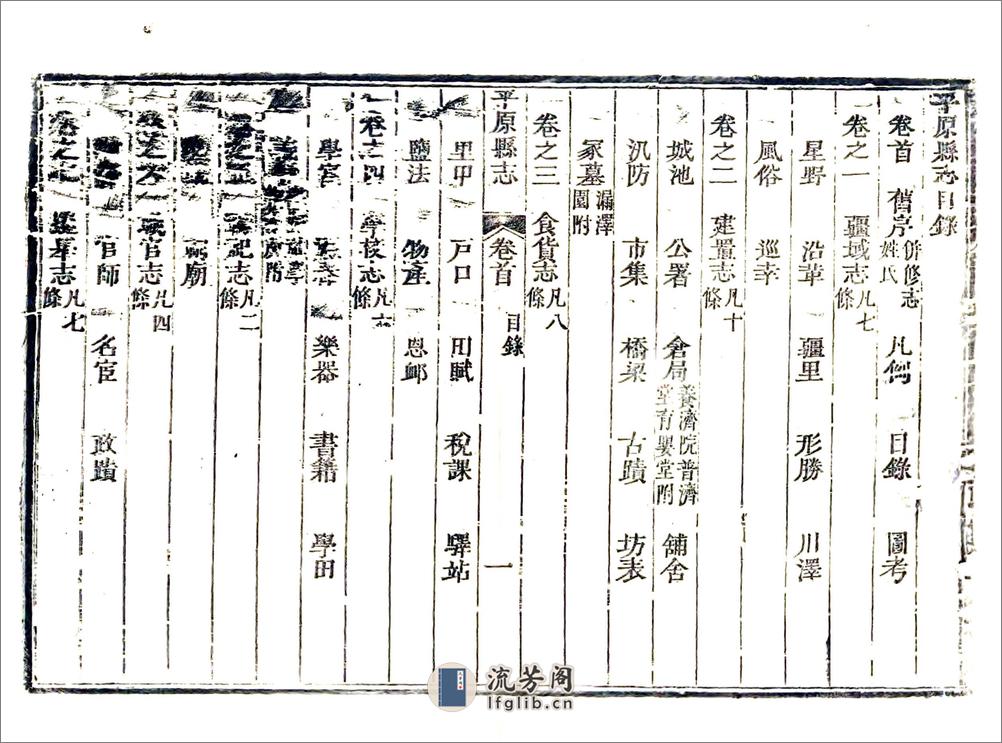 平原縣志目錄
卷首 舊序併修志姓氏 凡例 目錄 圖考
卷之一 疆域志凡七條
星野 沿革 疆里 形勝 川澤
風俗 巡幸
卷之二 建置志凡十條
城池 公署 倉局養濟院普濟堂育嬰堂附 舖舍
汛防 市集 橋梁 古蹟 坊表
冢墓漏澤園附
卷之三 食貨志凡八條
平原縣志 卷首 目錄 一
里甲 戶口 田賦 稅課 驛站
鹽法 物產 恩䘏
卷之四 學校志凡六條
學宮 樂器 書籍 學田
卷之五 祀志凡二條
廟
卷之六 職官志凡四條
官師 名宦 政蹟
卷之七 選舉志凡七條
流芳阁
lfglib.cn